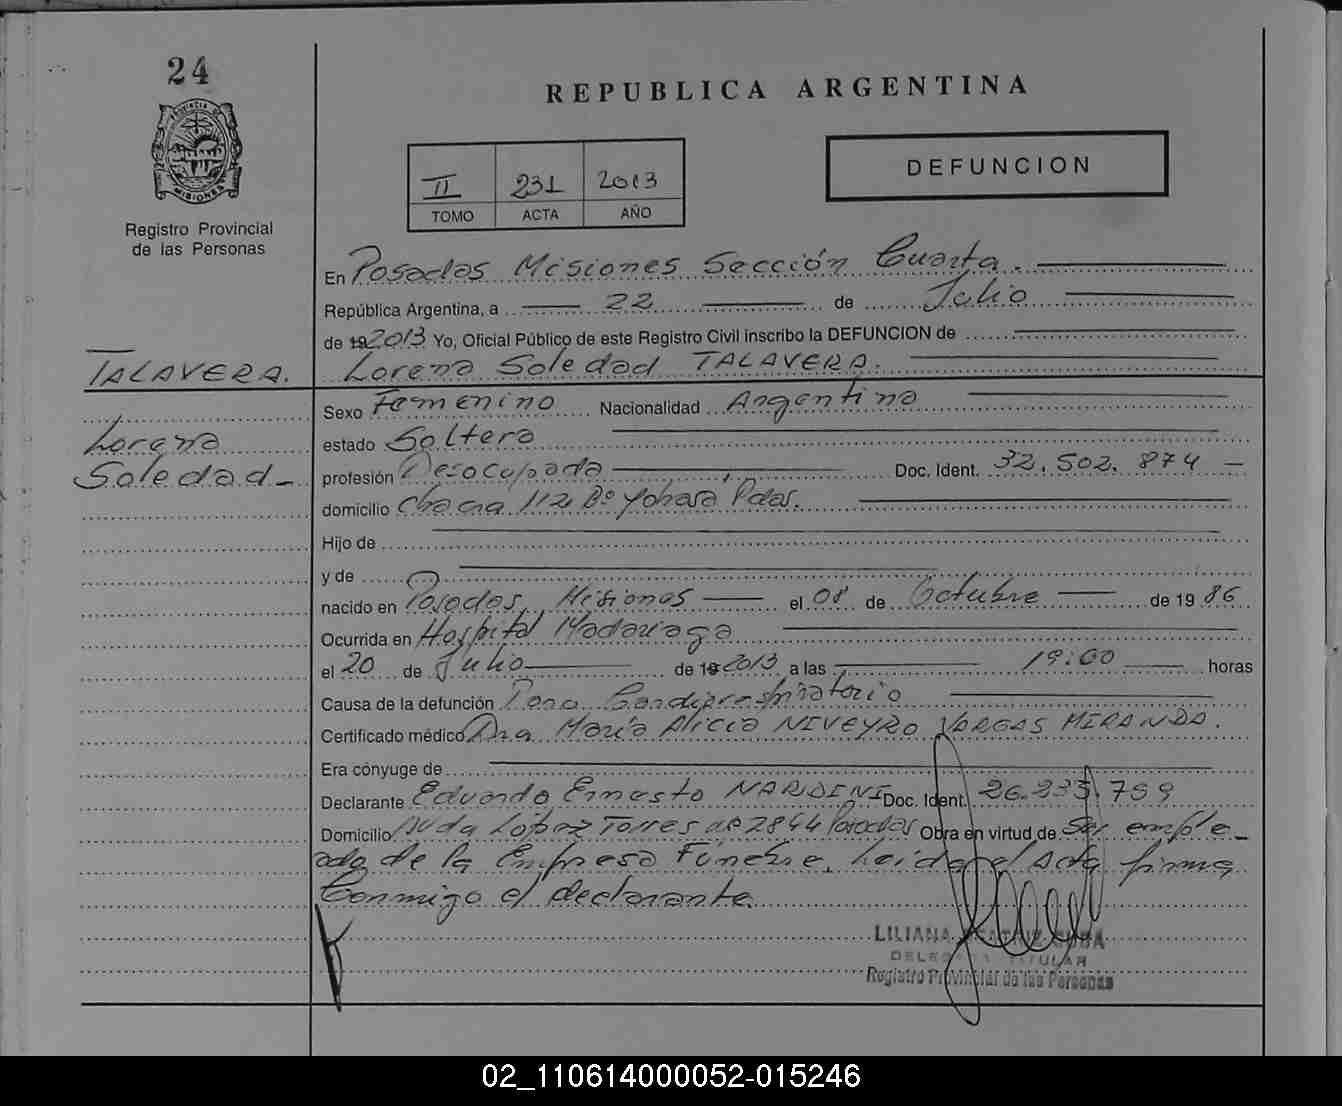 24
REPUBLICA ARGENTINA
PROVINCIA DE MISIONES
Registro Provincial
de las Personas
II 231 2013
TOMO ACTA AÑO
DEFUNCION
En Posadas Misiones Sección Cuarta.
República Argentina, a 22 de Julio
de 192013 Yo, Oficial Público de este Registro Civil inscribo la DEFUNCION de
TALAVERA. Lorena Soledad TALAVERA.
Lorena
Soledad
Sexo Femenino Nacionalidad Argentina
estado Soltera
profesión Desocupada Doc. Ident. 32.502.874
domicilio Chacra 112 Bº Yohasa, Pdas.
Hijo de
y de
nacido en Posadas, Misiones el 08 de Octubre de 1986
Ocurrida en Hospital Madariaga
el 20 de Julio de 192013 a las 19:00 horas
Causa de la defunción Paro Cardiorespiratorio
Certificado médico Dra María Alicia NIVEYRO VARGAS MIRANDA.
Era cónyuge de
Declarante Eduardo Ernesto NARDINI Doc. Ident. 26.235.759
Domicilio Avda López Torres nº 2844 Posadas Obra en virtud de Ser emple-
ado de la Empresa Fúnebre. Leída el Acta firma
Conmigo el declarante.
LILIANA BEATRIZ CUBA
DELEGADA TITULAR
Registro Provincial de las Personas
02_110614000052-015246